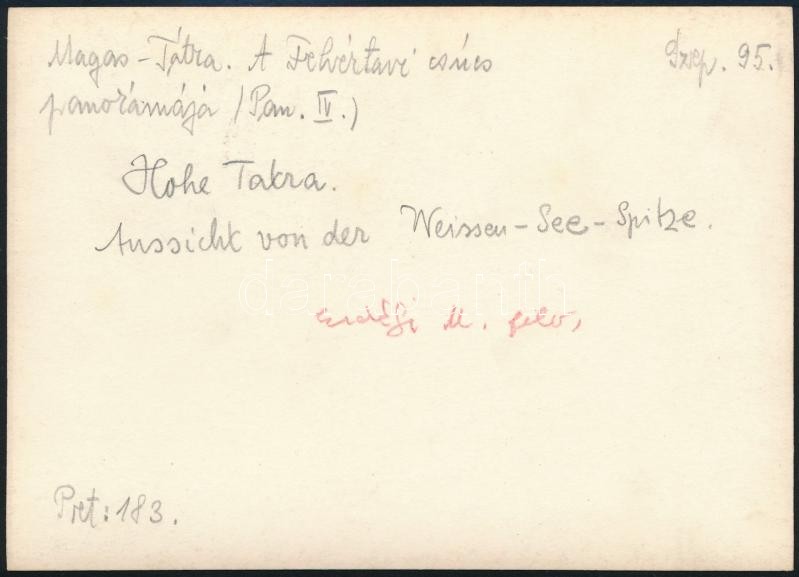 Magas-Tátra. A Fehértavi csúcs Szep. 95.
panorámája (Pan. IV.)
Hohe Tatra.
Aussicht von der Weissen-See-Spitze.
darabanth
Erdélyi M. felv,
Pret: 183.